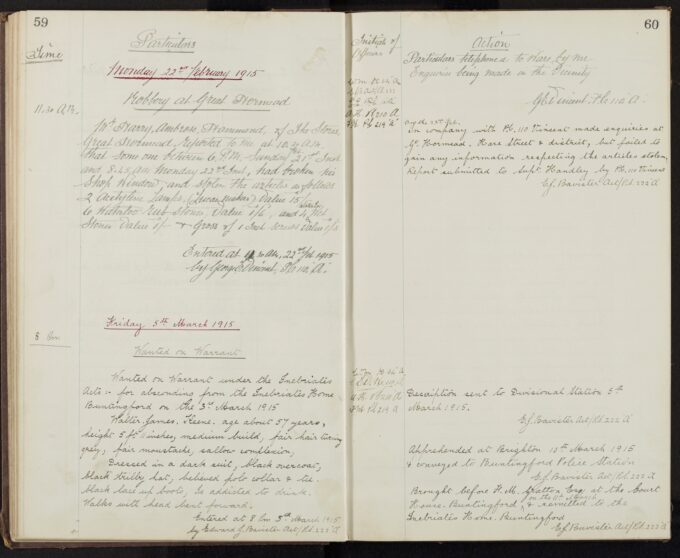 59
Time
Particulars
Monday 22nd February 1915
Robbery at Great Hormead
11.30 A.M.
Mr Harry, Ambrose, Hammond, of The Stores,
Great Hormead, reported to me at 10.20 A.M.
that some one between 6 P.M. Sunday 21st Inst
and 8.45 Am Monday 22nd Inst, had broken his
Shop Window, and stolen the articles as follows
2 Acetylene Lamps, Value 15/-
6 Waterloo Rub Stones, Value 1/6, and 4
Stones Value 1/- & Gross of 1 Inch screws Value
Entered at 11.30 Am, 22nd Feb 1915
by George Vincent, P.C. 110 'A'.
Friday 5th March 1915
8 Pm
Wanted on Warrant
Wanted on Warrant under the Inebriates
Acts :- for absconding from the Inebriates Home
Buntingford on the 3rd March 1915
Walter James. Keene. age about 57 years,
height 5 ft 7 inches, medium build, fair hair turning
grey, fair moustache, sallow complexion,
Dressed in a dark suit, black overcoat,
black trilby hat, believed polo collar & tie.
Black lace up boots, is addicted to drink.
Walks with head bent forward.
Entered at 8 Pm 5th March 1915
by Edward J. Banister Act/Sgt 222 'A'
60
Initials of
Officers
Action
Particulars telephoned to Ware, by me
Enquiries being made in the Vicinity
G. Vincent. P.C. 110 'A'.
22nd Feb.
In company with P.C. 110 Vincent made enquiries at
Gt. Hormead. Hare Street & district, but failed to
gain any information respecting the articles stolen,
Report submitted to Supt. Handley by P.C. 110 Vincent
E.J. Banister Act/Sgt. 222 'A'
Description sent to Divisional Station 5th
March 1915.
E.J. Banister Act/Sgt 222 'A'
Apprehended at Brighton 10th March 1915
& conveyed to Buntingford Police Station
E.J. Banister Act/Sgt 222 'A'
Brought before H. M. Gratton Esq. at the Court
on the 11th March
House. Buntingford, & remitted to the
Inebriates Home. Buntingford
E.J. Banister Act/Sgt 222 'A'